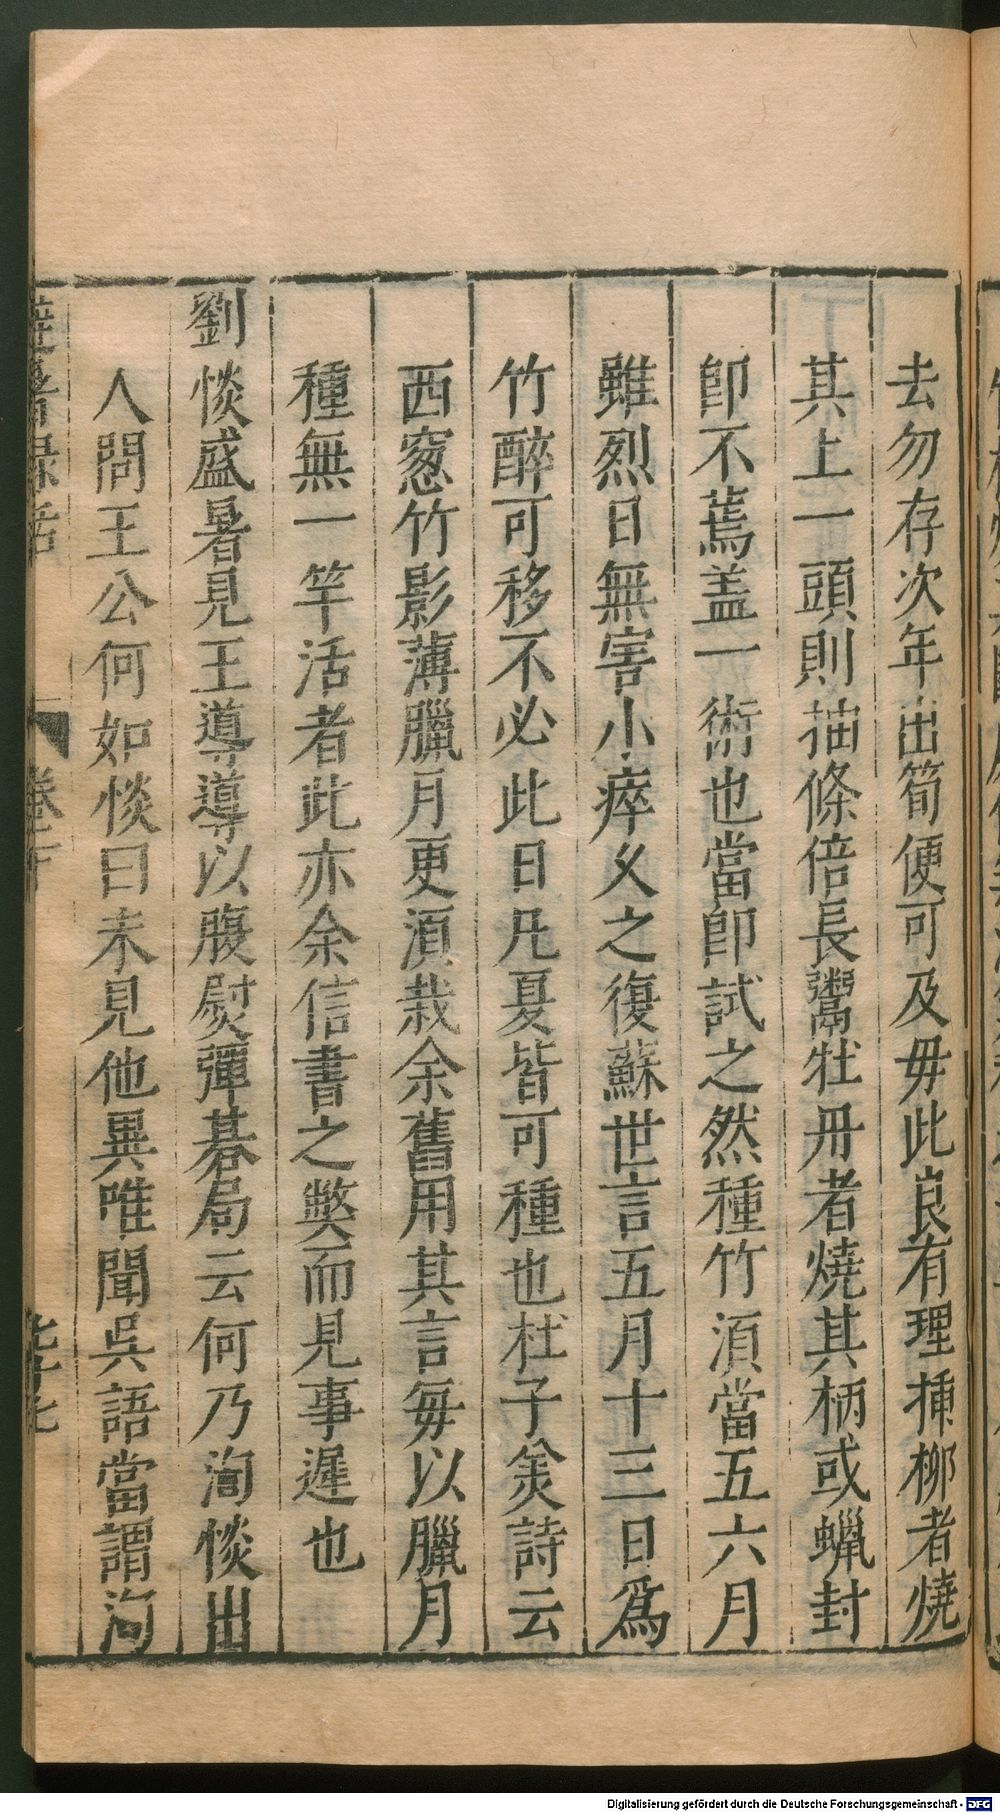 去勿存次年出筍便可及毋此良有理揷柳者燒
其上一頭則抽條倍長鬻牡丹者燒其柄或蠟封
卽不蔫盖一術也當卽試之然種竹湏當五六月
雖烈日無害小瘁乆之復蘇世言五月十三日爲
竹醉可移不必此日凡夏皆可種也杜子美詩云
西窻竹影薄臘月更湏栽余舊用其言毎以臘月
種無一竿活者此亦余信書之獘而見事遲也
劉惔盛暑見王導導以腹熨彈碁局云何乃渹惔出
人問王公何如惔曰未見他異唯聞吳語當謂渹
避暑録話 卷下
Digitalisierung gefördert durch die Deutsche Forschungsgemeinschaft - DFG